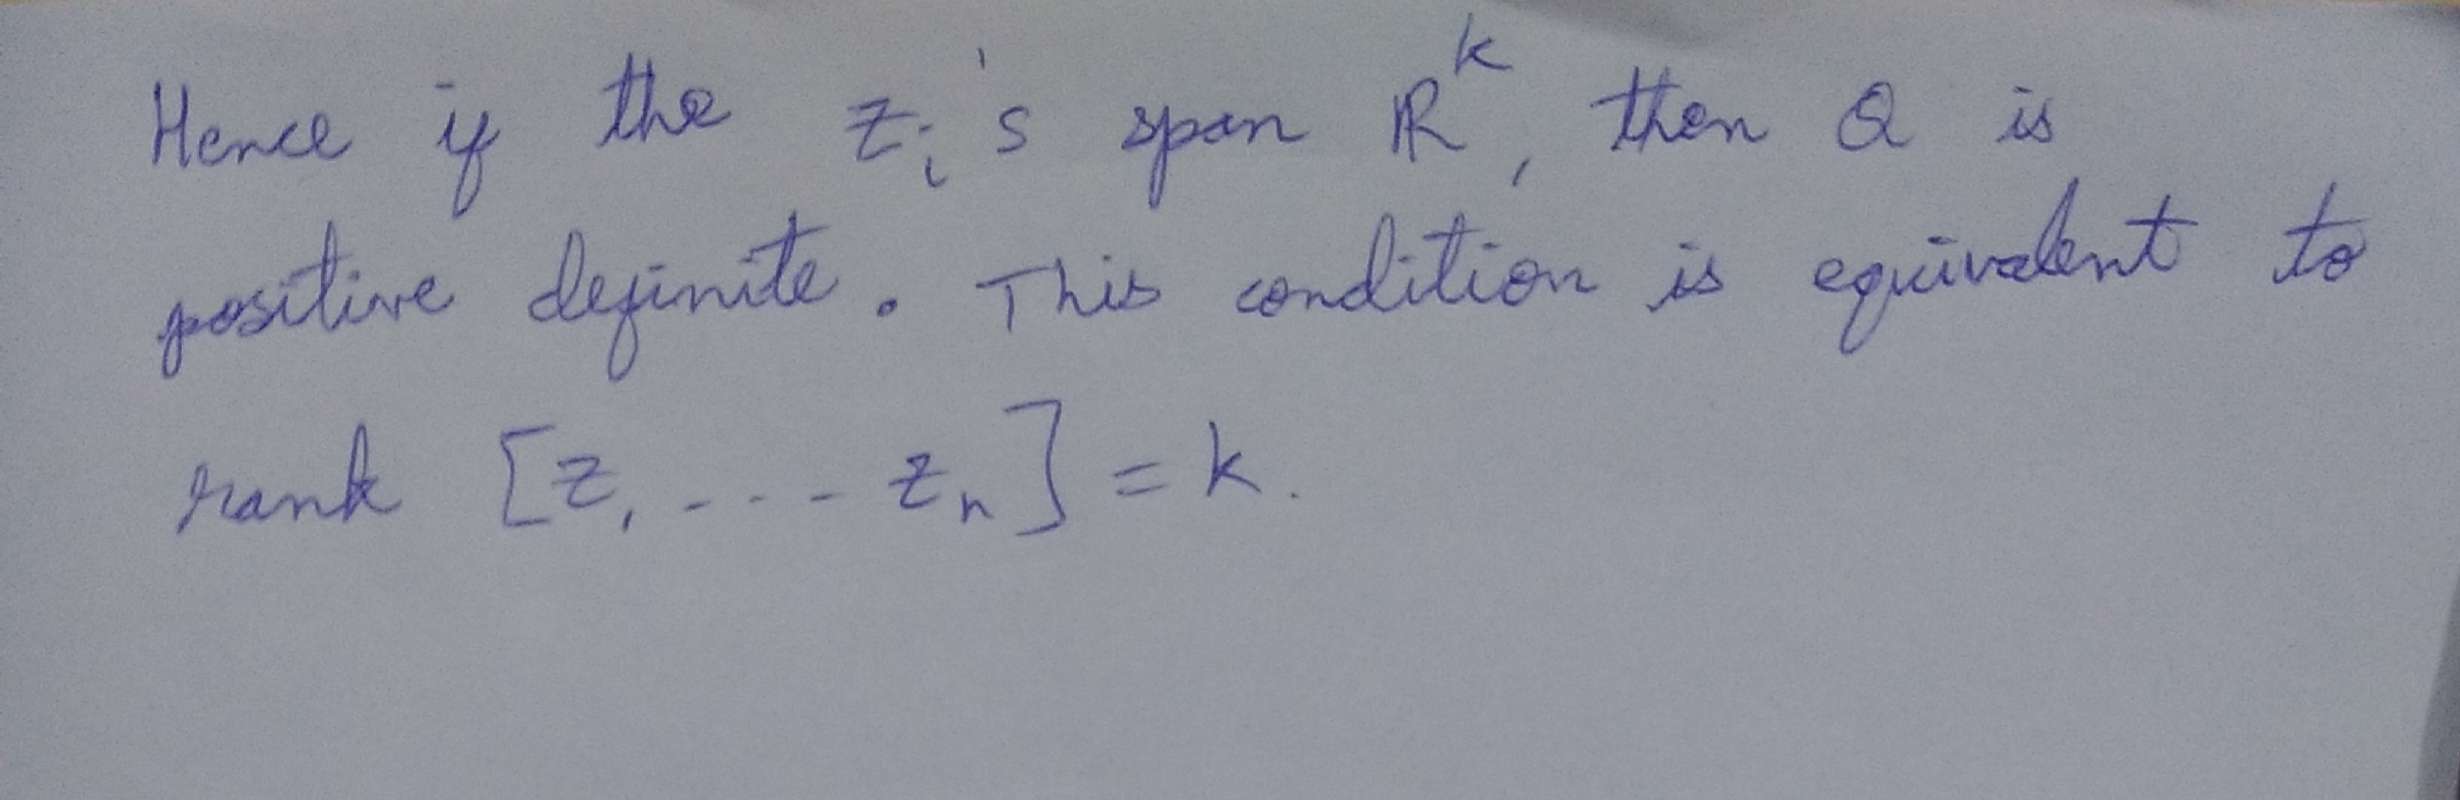 Hence if the zᵢ's span ℝᵏ, then Q is
positive definite. This condition is equivalent to
rank [z₁ ---- zₙ] = k.